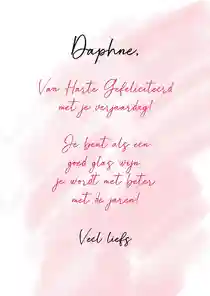 Daphne,
Van Harte Gefeliciteerd
met je verjaardag!
Je bent als een
goed glas wijn
je wordt met beter
met de jaren!
Veel liefs